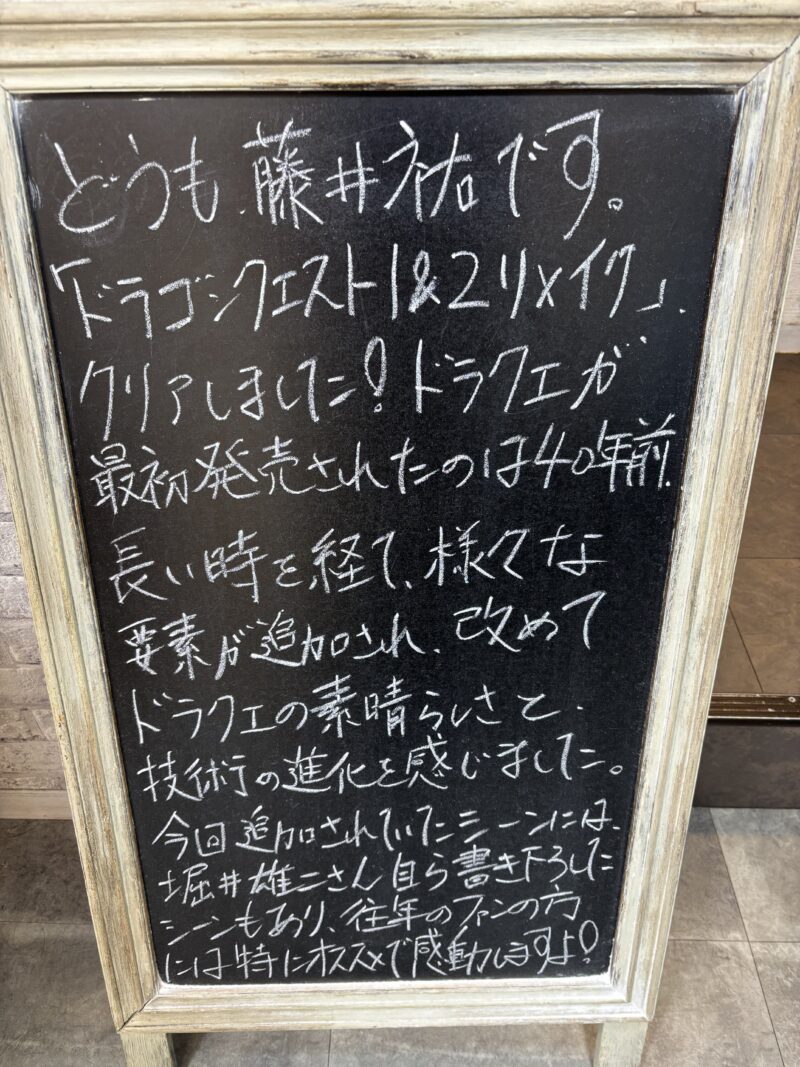 どうも、藤井祐です。
「ドラゴンクエスト1&2リメイク」、
クリアしました!ドラクエが
最初発売されたのは40年前。
長い時を経て、様々な
要素が追加され、改めて
ドラクエの素晴らしさと、
技術の進化を感じました。
今回追加されていたシーンには、
堀井雄二さん自ら書き下ろした
シーンもあり、往年のファンの方
には特にオススメで感動しますよ!